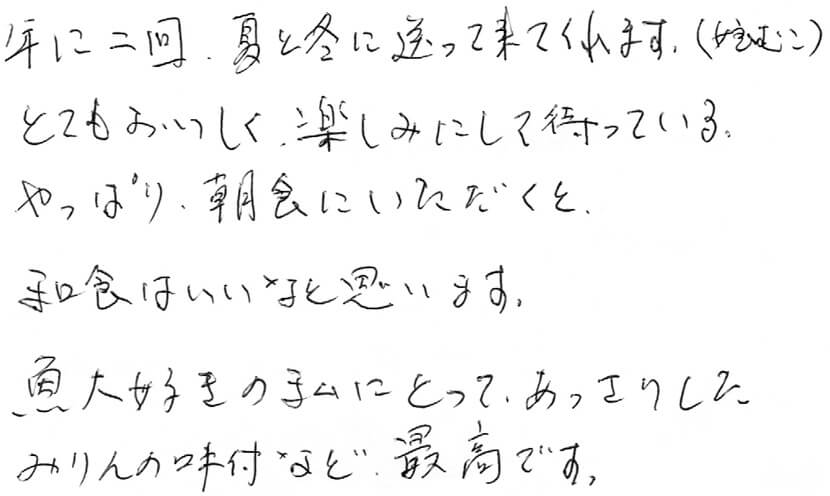 年に二回、夏と冬に送って来てくれます。(姪むこ)
とてもおいしく、楽しみにして待っている。
やっぱり、朝食にいただくと、
和食はいいなと思います。
魚大好きの私にとって、あっさりした
みりんの味付など、最高です。